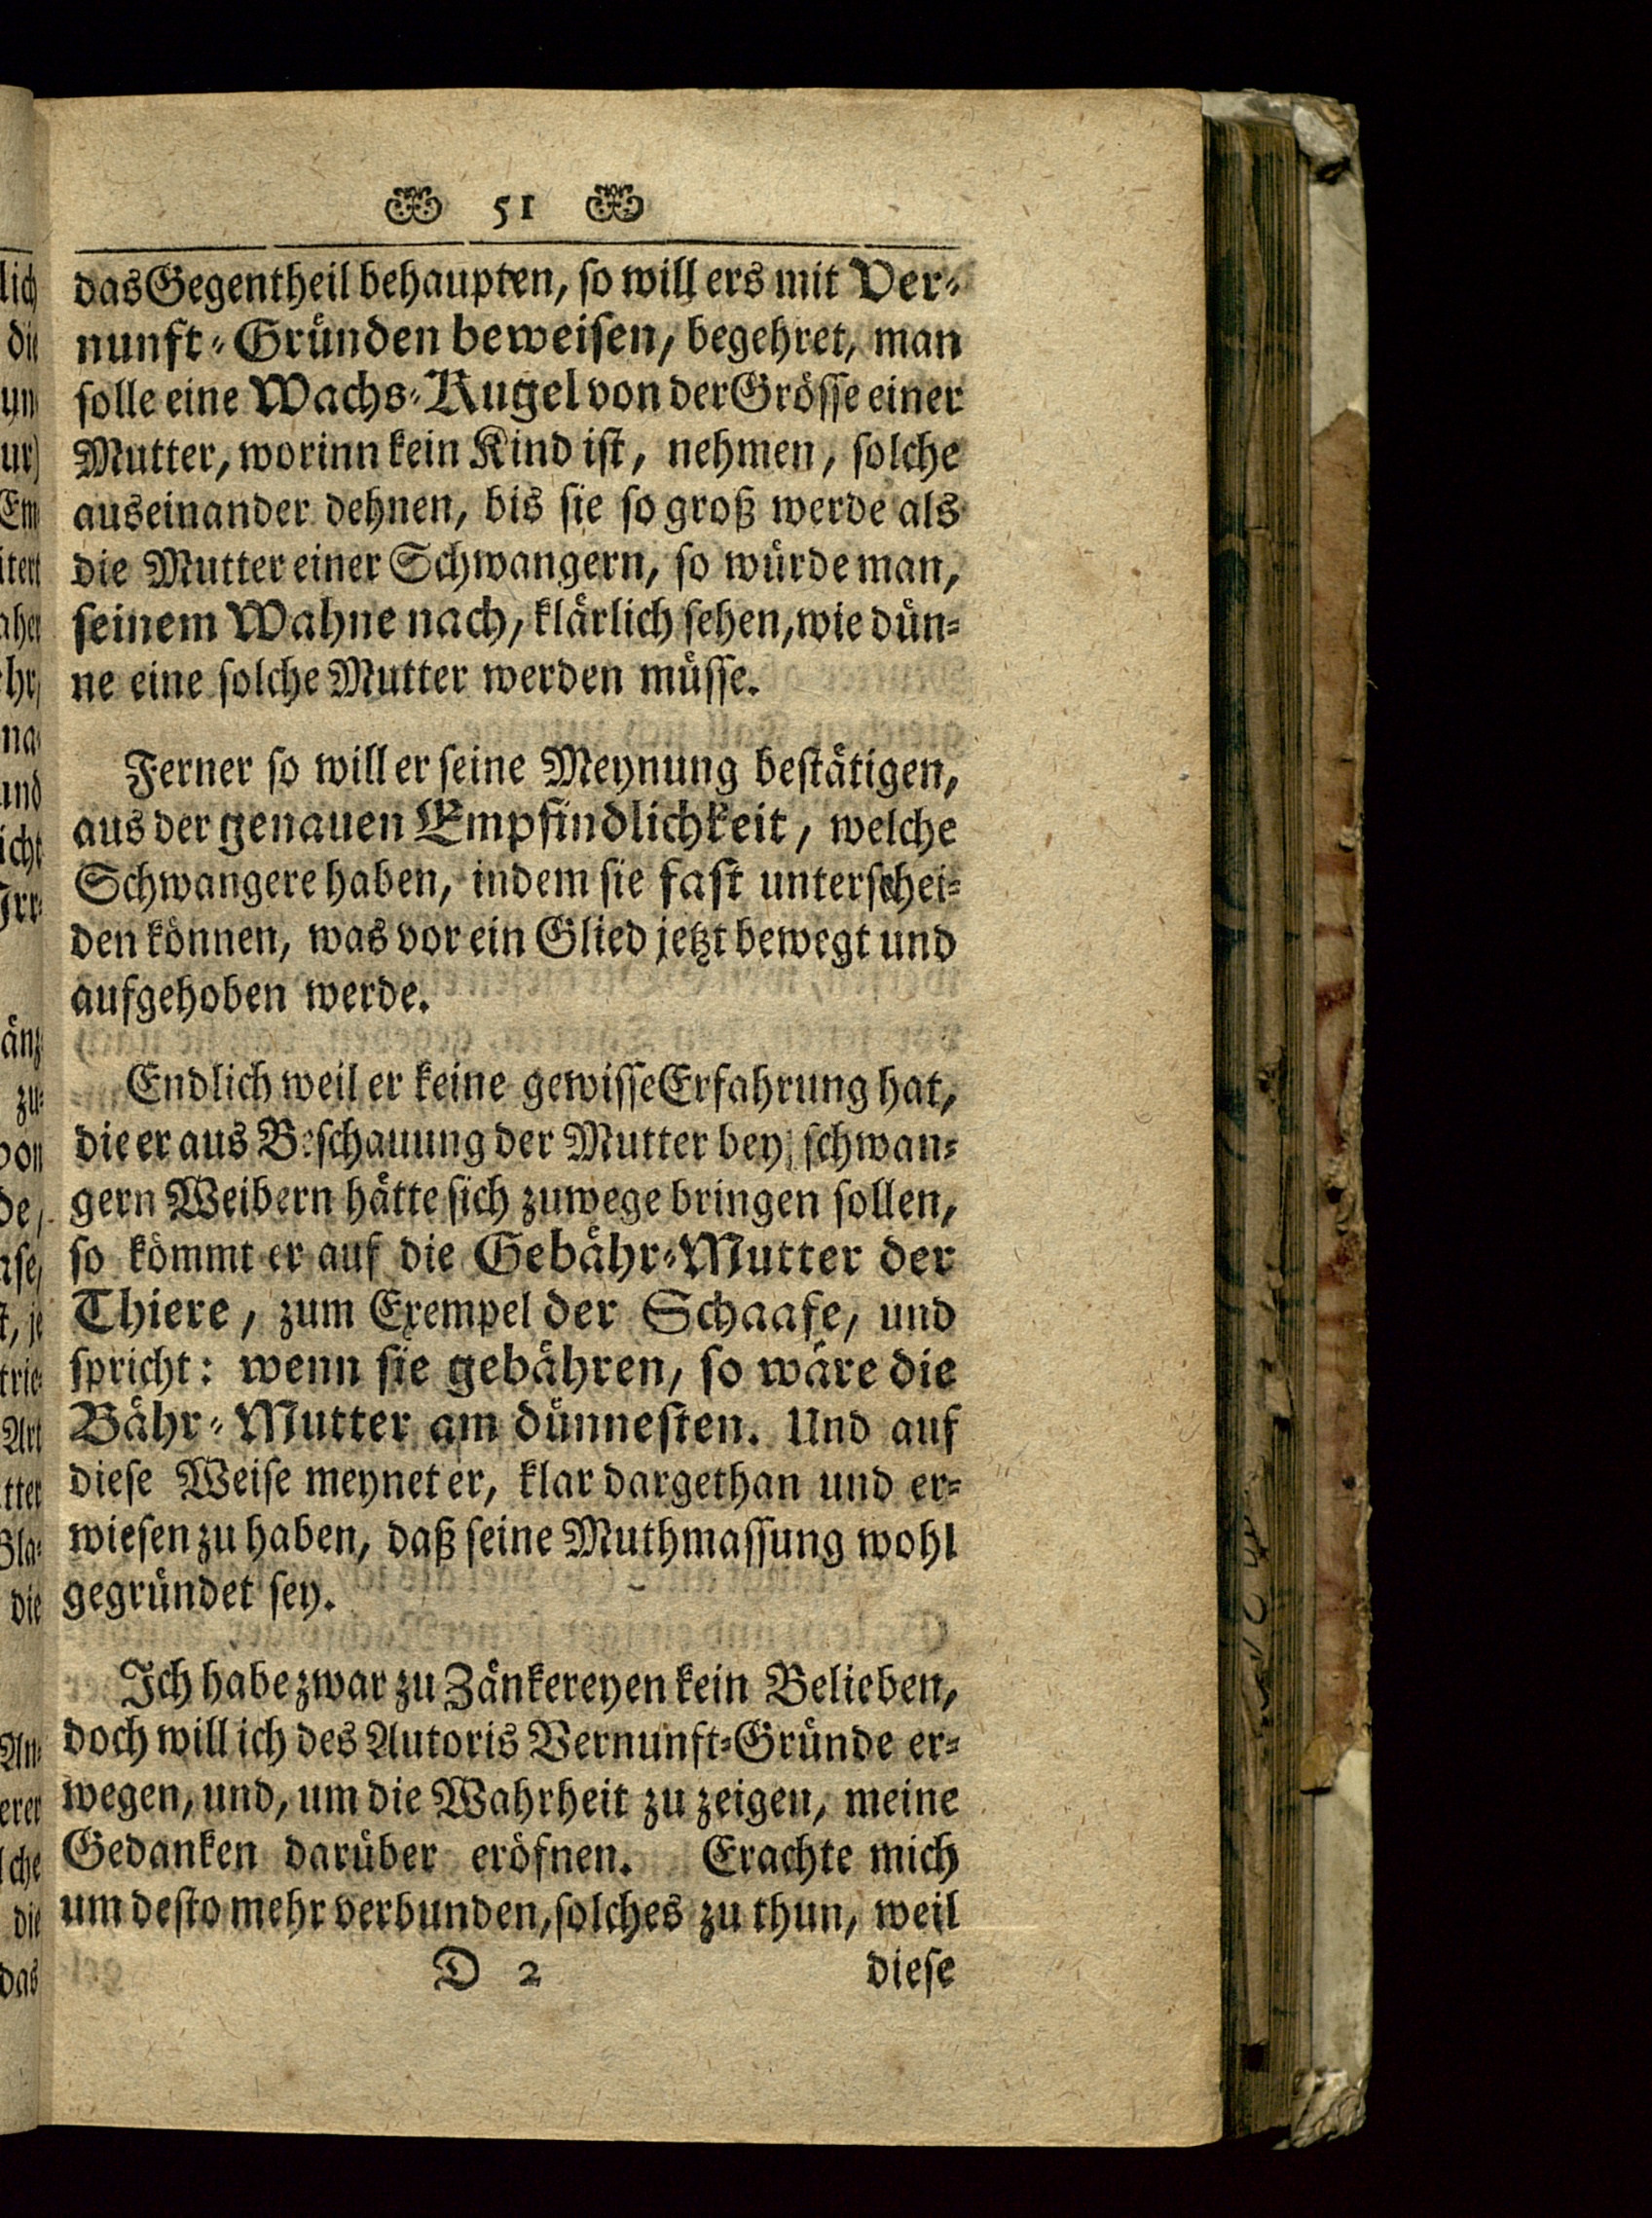 51
das Gegentheil behaupten, so will ers mit Ver-
nunft-Gründen beweisen, begehret, man
solle eine Wachs-Kugel von der Grösse einer
Mutter, worinn kein Kind ist, nehmen, solche
auseinander dehnen, bis sie so groß werde als
die Mutter einer Schwangern, so würde man,
seinem Wahne nach, klärlich sehen, wie dün-
ne eine solche Mutter werden müsse.
Ferner so will er seine Meynung bestätigen,
aus der genauen Empfindlichkeit, welche
Schwangere haben, indem sie fast unterschei-
den können, was vor ein Glied jetzt bewegt und
aufgehoben werde.
Endlich weil er keine gewisse Erfahrung hat,
die er aus Beschauung der Mutter bey schwan-
gern Weibern hätte sich zuwege bringen sollen,
so kömmt er auf die Gebähr-Mutter der
Thiere, zum Exempel der Schaafe, und
spricht: wenn sie gebähren, so wäre die
Bähr-Mutter am dünnesten. Und auf
diese Weise meynet er, klar dargethan und er-
wiesen zu haben, daß seine Muthmassung wohl
gegründet sey.
Ich habe zwar zu Zänkereyen kein Belieben,
doch will ich des Autoris Vernunft-Gründe er-
wegen, und, um die Wahrheit zu zeigen, meine
Gedanken darüber eröfnen. Erachte mich
um desto mehr verbunden, solches zu thun, weil
D 2 diese